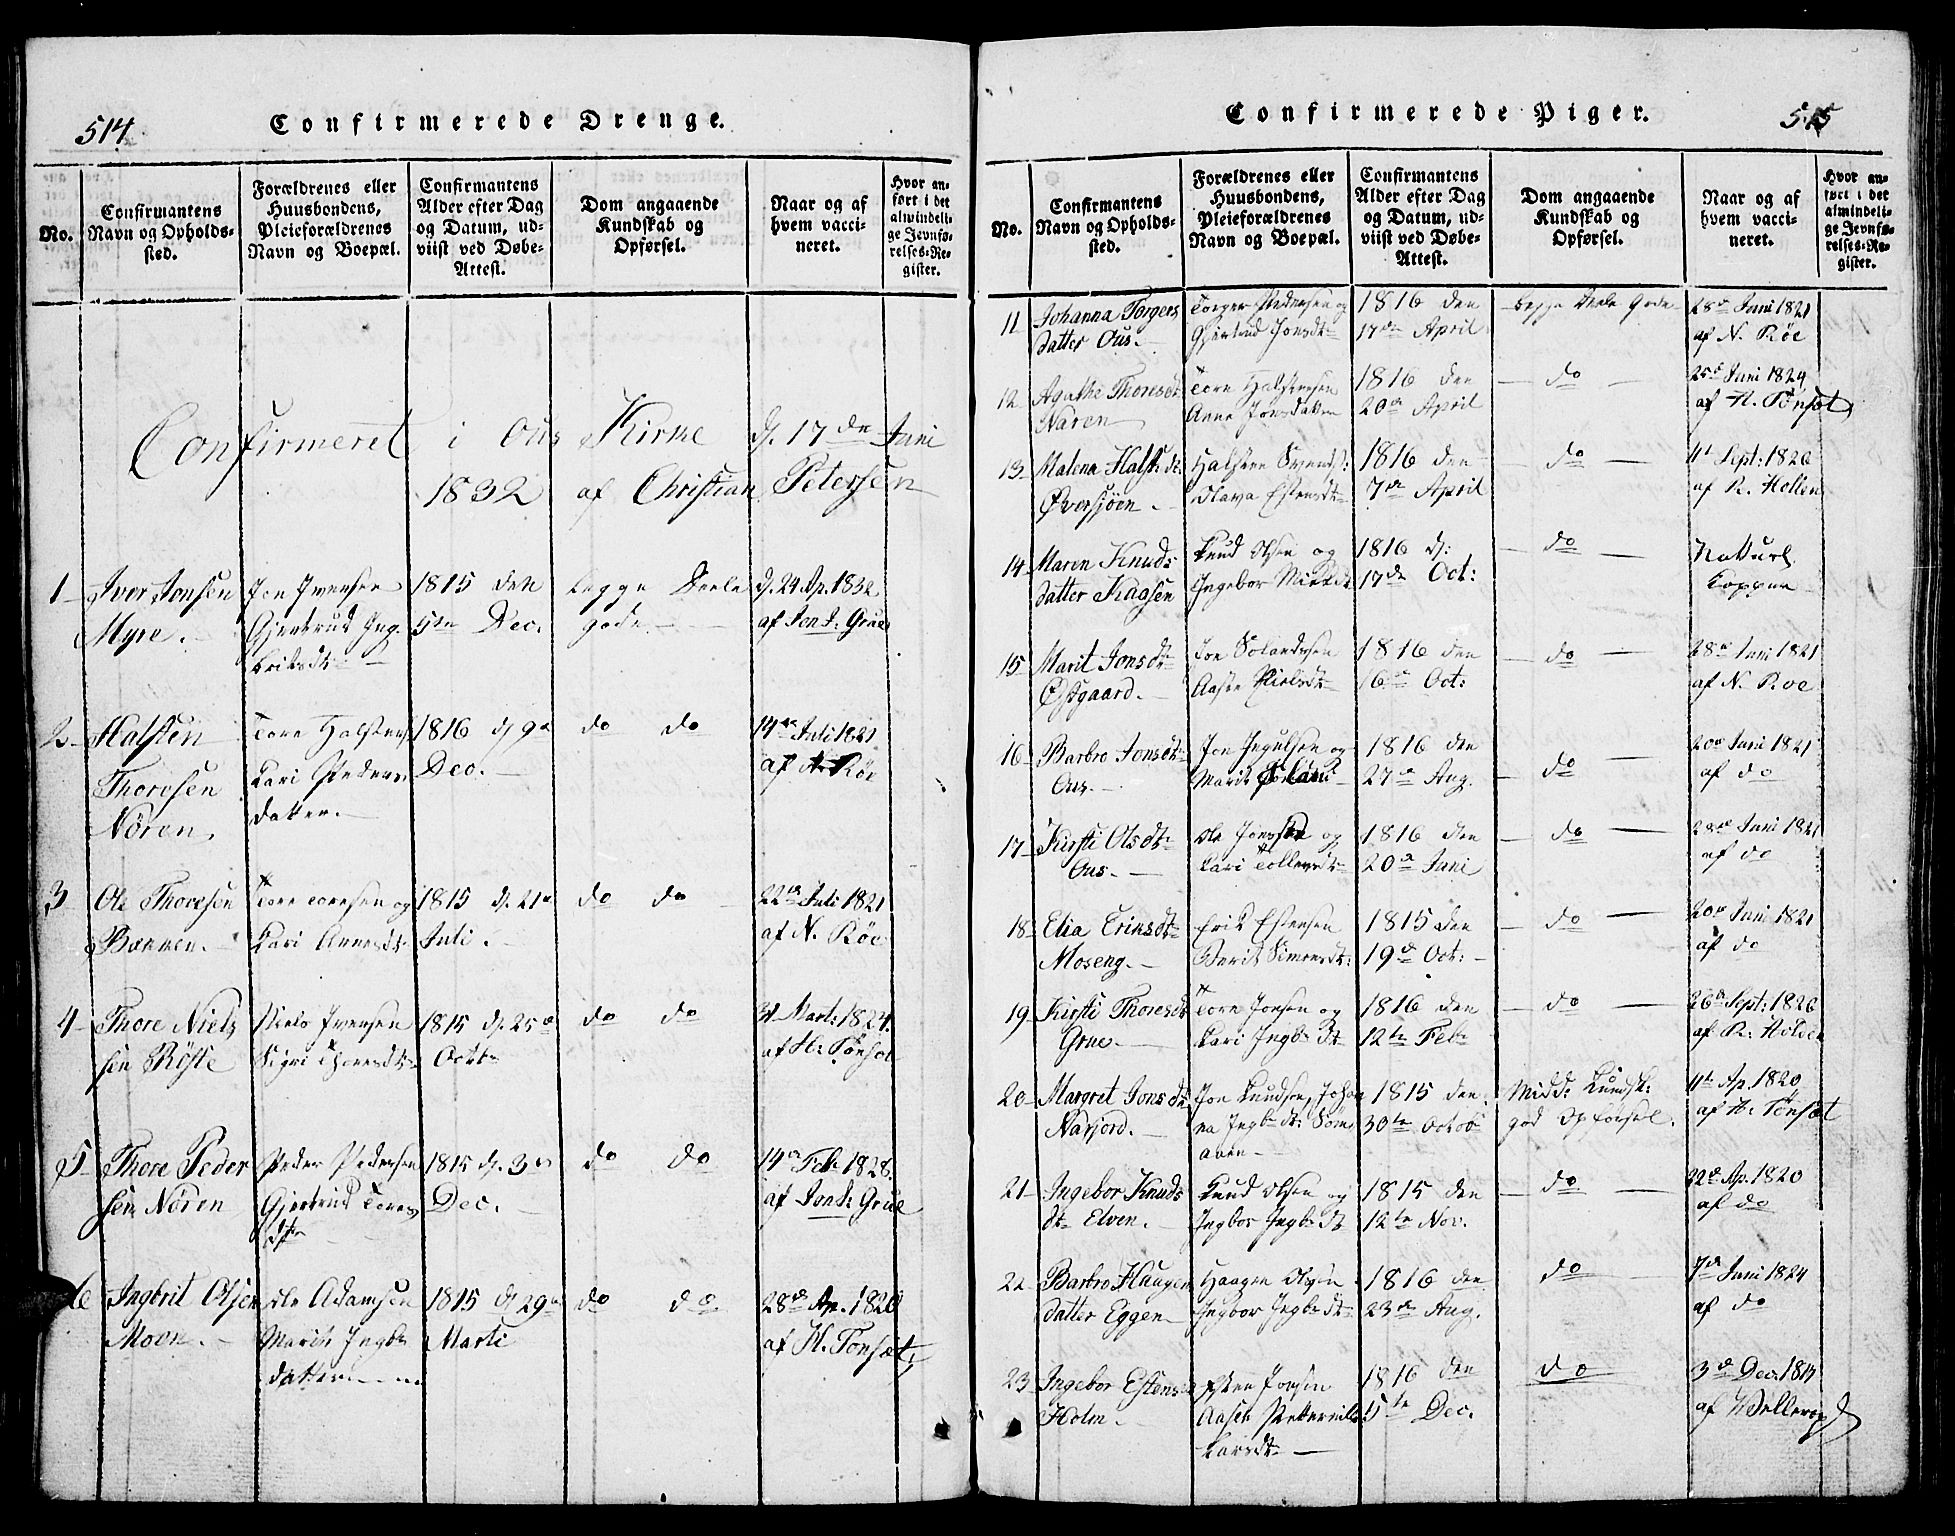 514.
Confirmerede Drenge.
No.
Confirmantens
Navn og Opholds-
sted.
Forældrenes eller
Huusbondens,
Pleieforældrenes
Navn og Boepæl.
Confirmantens
Alder efter Dag
og Datum, ud-
viist ved Døbe-
Attest.
Dom angaaende
Kundskab og
Opførsel.
Naar og af
hvem vacci-
neret.
Hvor an-
ført i det
almindeli-
ge Jevnfø-
relses-Re-
gister.
Confirmeret i Ous Kirke d. 17de Juni
1832 af Christian Petersen
1
Iver Jonsen
Myre.
Jon Iversen
Gjertrud Ing-
1815 den
5te Dec.
begge Deele
gode
d. 24 Ap. 1832
af Jon I. Grue
2
Halsten
Thoresen
Nøren
Tore Halstens
Kari Peders
datter
1816 d 9de
Dec.
do do
14de Juli 1821
af N. Røe
3
Ole Thoresen
Bakken.
Tore Toresen og
Kari Arnesdt
1815 d. 21de
Juli.
do do
22de Juli 1821
af N. Røe
4
Thore Niels
sen Røste
Niels Iversen
Sigri Thoresdt
1815 d. 25de
Octbr
do do
31 Marts 1824
af H. Tønset
5
Thore Peder
sen Nøren
Peder Pedersen
Gjertrud Tores
dtr
1815 d. 3de
Dec.
do do
14de Feb. 1828
af Jon I. Grue
6
Ingbrit Olsen
Moen.
Ole Adamsen
Marit Ingbr
datter
1815 d 29de
Marti
do do
28de Ap. 1820
af H. Tønset
Confirmerede Piger.
515
No.
Confirmantens
Navn og Opholds-
sted.
Forældrenes eller
Huusbondens,
Pleieforældrenes
Navn og Boepæl.
Confirmantens
Alder efter Dag
og Datum, ud-
viist ved Døbe-
Attest.
Dom angaaende
Kundskab og
Opførsel.
Naar og af
hvem vacci-
neret.
Hvor an-
ført i det
almindeli-
ge Jevnfø-
relses-Re-
gister.
11
Johanna Torgers
datter Ous.
Torger Pedersen og
Gjertrud Jonsdt
1816 den
17de April
begge Deele Gode
28de Juni 1821
af N. Røe
12
Agathe Thoresdt
Nøren
Tore Halstensen
Anne Jonsdatter
1816 den
20de April
do
25de Juni 1824
af H. Tønset
13
Malena Halst. dt.
Øversjøen
Halsten Svends:
Olava Estensdt
1816 den
7de April
do
11t Sept: 1820
af R. Hollen
14
Maren Knuds
datter Kaasen
Knud Olsen og
Ingebor
1816 d:
17de Oct:
do
Naturl.
Kopper
15
Marit Jonsdt
Østgaard.
Jon
Aasta Nielsdt
1816 den
16de Oct:
do
28de Juni 1821
af N. Roe
16
Barbro Jonsdt
Ous.
Jon Ingulsen og
Marit
1816 den
27de Aug.
do
20de Juni 1821
af do
17
Kirsti Olsdt
Ous.
Ole Jonssen og
Kari Tollevsdt
1816 den
20de Juni
do
28de Juni 1821
af do
18
Elia Erinsdt
Moseng.
Erik Estensen
Berit Simonsdt:
1815 den
19de Oct:
do
20de Juni 1821
af do
19
Kirsti Thoresdt
Grue
Tore Jonsen og
Kari Ingbr dt
1816 den
12te Febr
do
26de Sept: 1820
af R. Holden
20
Margret Jonsdt
Narjord.
Jon Knudsen, Johan
na Ingbr dt: Søm
aaen
1815 den
30te Octob
Midd: Kundsk:
god Opførsel.
11te Ap. 1820
af H. Tønset
21
Ingebor Knuds
dt Elven.
Knud Olsen og
Ingbor Ingbr dt
1815 den
12te Nov.
do
22de Ap. 1820
af do
22
Barbro Haagen
datter Eggen
Haagen Olsen
Ingbor Ingbr dt
1816 den
23de Aug.
do
7de Juni 1824
af do
23
Ingebor Estens
Holm
Esten Jonsen
Aaset
Larsdt
1816 den
5te Dec.
do
3de Dec. 1819
af Wellerop